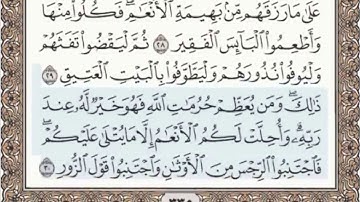 عَلَىٰ مَا رَزَقَهُم مِّنۢ بَهِيمَةِ ٱلْأَنْعَٰمِ ۖ فَكُلُوا۟ مِنْهَا
وَأَطْعِمُوا۟ ٱلْبَآئِسَ ٱلْفَقِيرَ ٢٨ ثُمَّ لْيَقْضُوا۟ تَفَثَهُمْ
وَلْيُوفُوا۟ نُذُورَهُمْ وَلْيَطَّوَّفُوا۟ بِٱلْبَيْتِ ٱلْعَتِيقِ ٢٩
ذَٰلِكَ ۖ وَمَن يُعَظِّمْ حُرُمَٰتِ ٱللَّهِ فَهُوَ خَيْرٌ لَّهُۥ عِندَ
رَبِّهِۦ ۗ وَأُحِلَّتْ لَكُمُ ٱلْأَنْعَٰمُ إِلَّا مَا يُتْلَىٰ عَلَيْكُمْ ۖ
فَٱجْتَنِبُوا۟ ٱلرِّجْسَ مِنَ ٱلْأَوْثَٰنِ وَٱجْتَنِبُوا۟ قَوْلَ ٱلزُّورِ ٣٠
٣٣٥